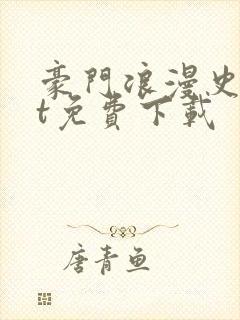 豪門浪漫史
t免費下載
唐青魚